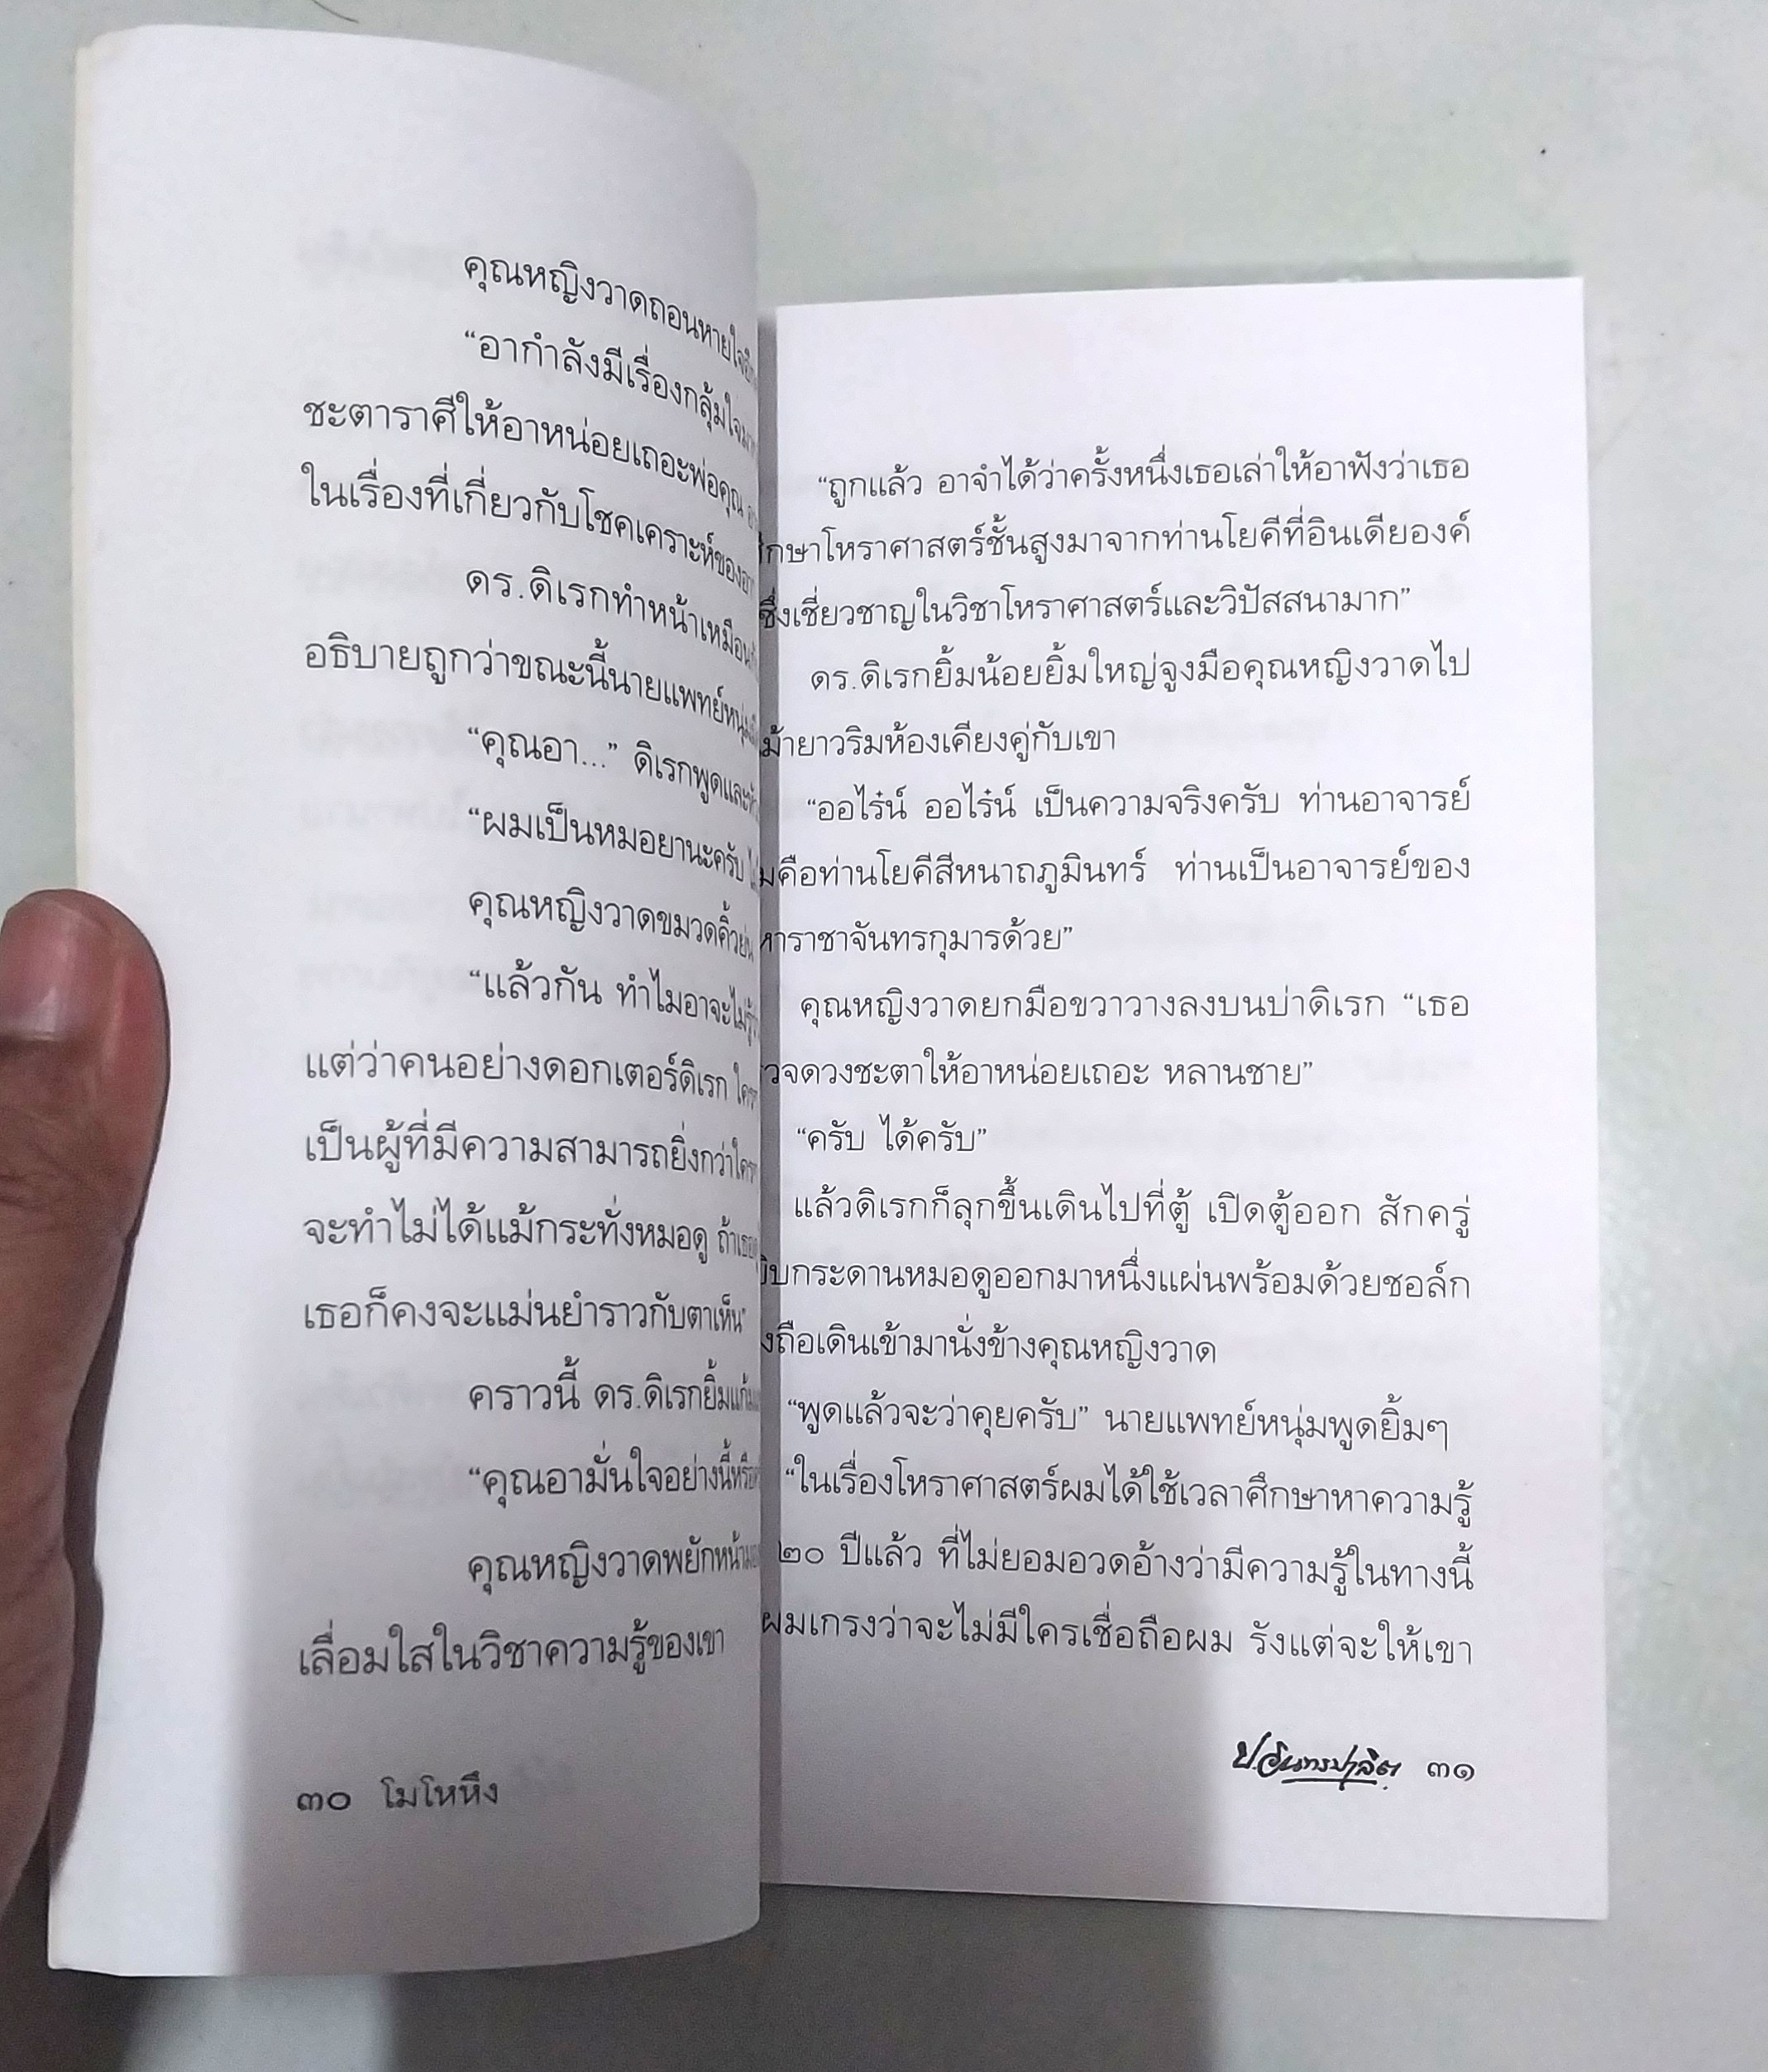 คุณหญิงวาดถอนหายใจ
“อากำลังมีเรื่องกลุ้มใจ
ชะตาราศีให้อาหน่อยเถอะพ่อคุณ
ในเรื่องที่เกี่ยวกับโชคเคราะห์ของอา
ดร.ดิเรกทำหน้าเหมือน
อธิบายถูกว่าขณะนี้นายแพทย์หนุ่ม
“คุณอา...” ดิเรกพูดและ
“ผมเป็นหมอยานะครับ
คุณหญิงวาดขมวดคิ้ว
“แล้วกัน ทำไมอาจะไม่รู้
แต่ว่าคนอย่างดอกเตอร์ดิเรก ใคร
เป็นผู้ที่มีความสามารถยิ่งกว่าใคร
จะทำไม่ได้แม้กระทั่งหมอดู ถ้าเธอ
เธอก็คงจะแม่นยำราวกับตาเห็น”
คราวนี้ ดร.ดิเรกยิ้ม
“คุณอามั่นใจอย่างนี้หรือ
คุณหญิงวาดพยักหน้า
เลื่อมใสในวิชาความรู้ของเขา
๓๐ โมโหหึง
“ถูกแล้ว อาจำได้ว่าครั้งหนึ่งเธอเล่าให้อาฟังว่าเธอ
ศึกษาโหราศาสตร์ชั้นสูงมาจากท่านโยคีที่อินเดียองค์
ซึ่งเชี่ยวชาญในวิชาโหราศาสตร์และวิปัสสนามาก”
ดร.ดิเรกยิ้มน้อยยิ้มใหญ่จูงมือคุณหญิงวาดไป
ม้ายาวริมห้องเคียงคู่กับเขา
“ออไร๋น์ ออไร๋น์ เป็นความจริงครับ ท่านอาจารย์
มคือท่านโยคีสีหนาถภูมินทร์ ท่านเป็นอาจารย์ของ
หาราชาจันทรกุมารด้วย”
คุณหญิงวาดยกมือขวาวางลงบนบ่าดิเรก “เธอ
วจดวงชะตาให้อาหน่อยเถอะ หลานชาย”
“ครับ ได้ครับ”
แล้วดิเรกก็ลุกขึ้นเดินไปที่ตู้ เปิดตู้ออก สักครู่
ยิบกระดานหมอดูออกมาหนึ่งแผ่นพร้อมด้วยชอล์ก
งถือเดินเข้ามานั่งข้างคุณหญิงวาด
“พูดแล้วจะว่าคุยครับ” นายแพทย์หนุ่มพูดยิ้มๆ
“ในเรื่องโหราศาสตร์ผมได้ใช้เวลาศึกษาหาความรู้
๒๐ ปีแล้ว ที่ไม่ยอมอวดอ้างว่ามีความรู้ในทางนี้
ผมเกรงว่าจะไม่มีใครเชื่อถือผม รังแต่จะให้เขา
ป.อินทรปาลิต ๓๑